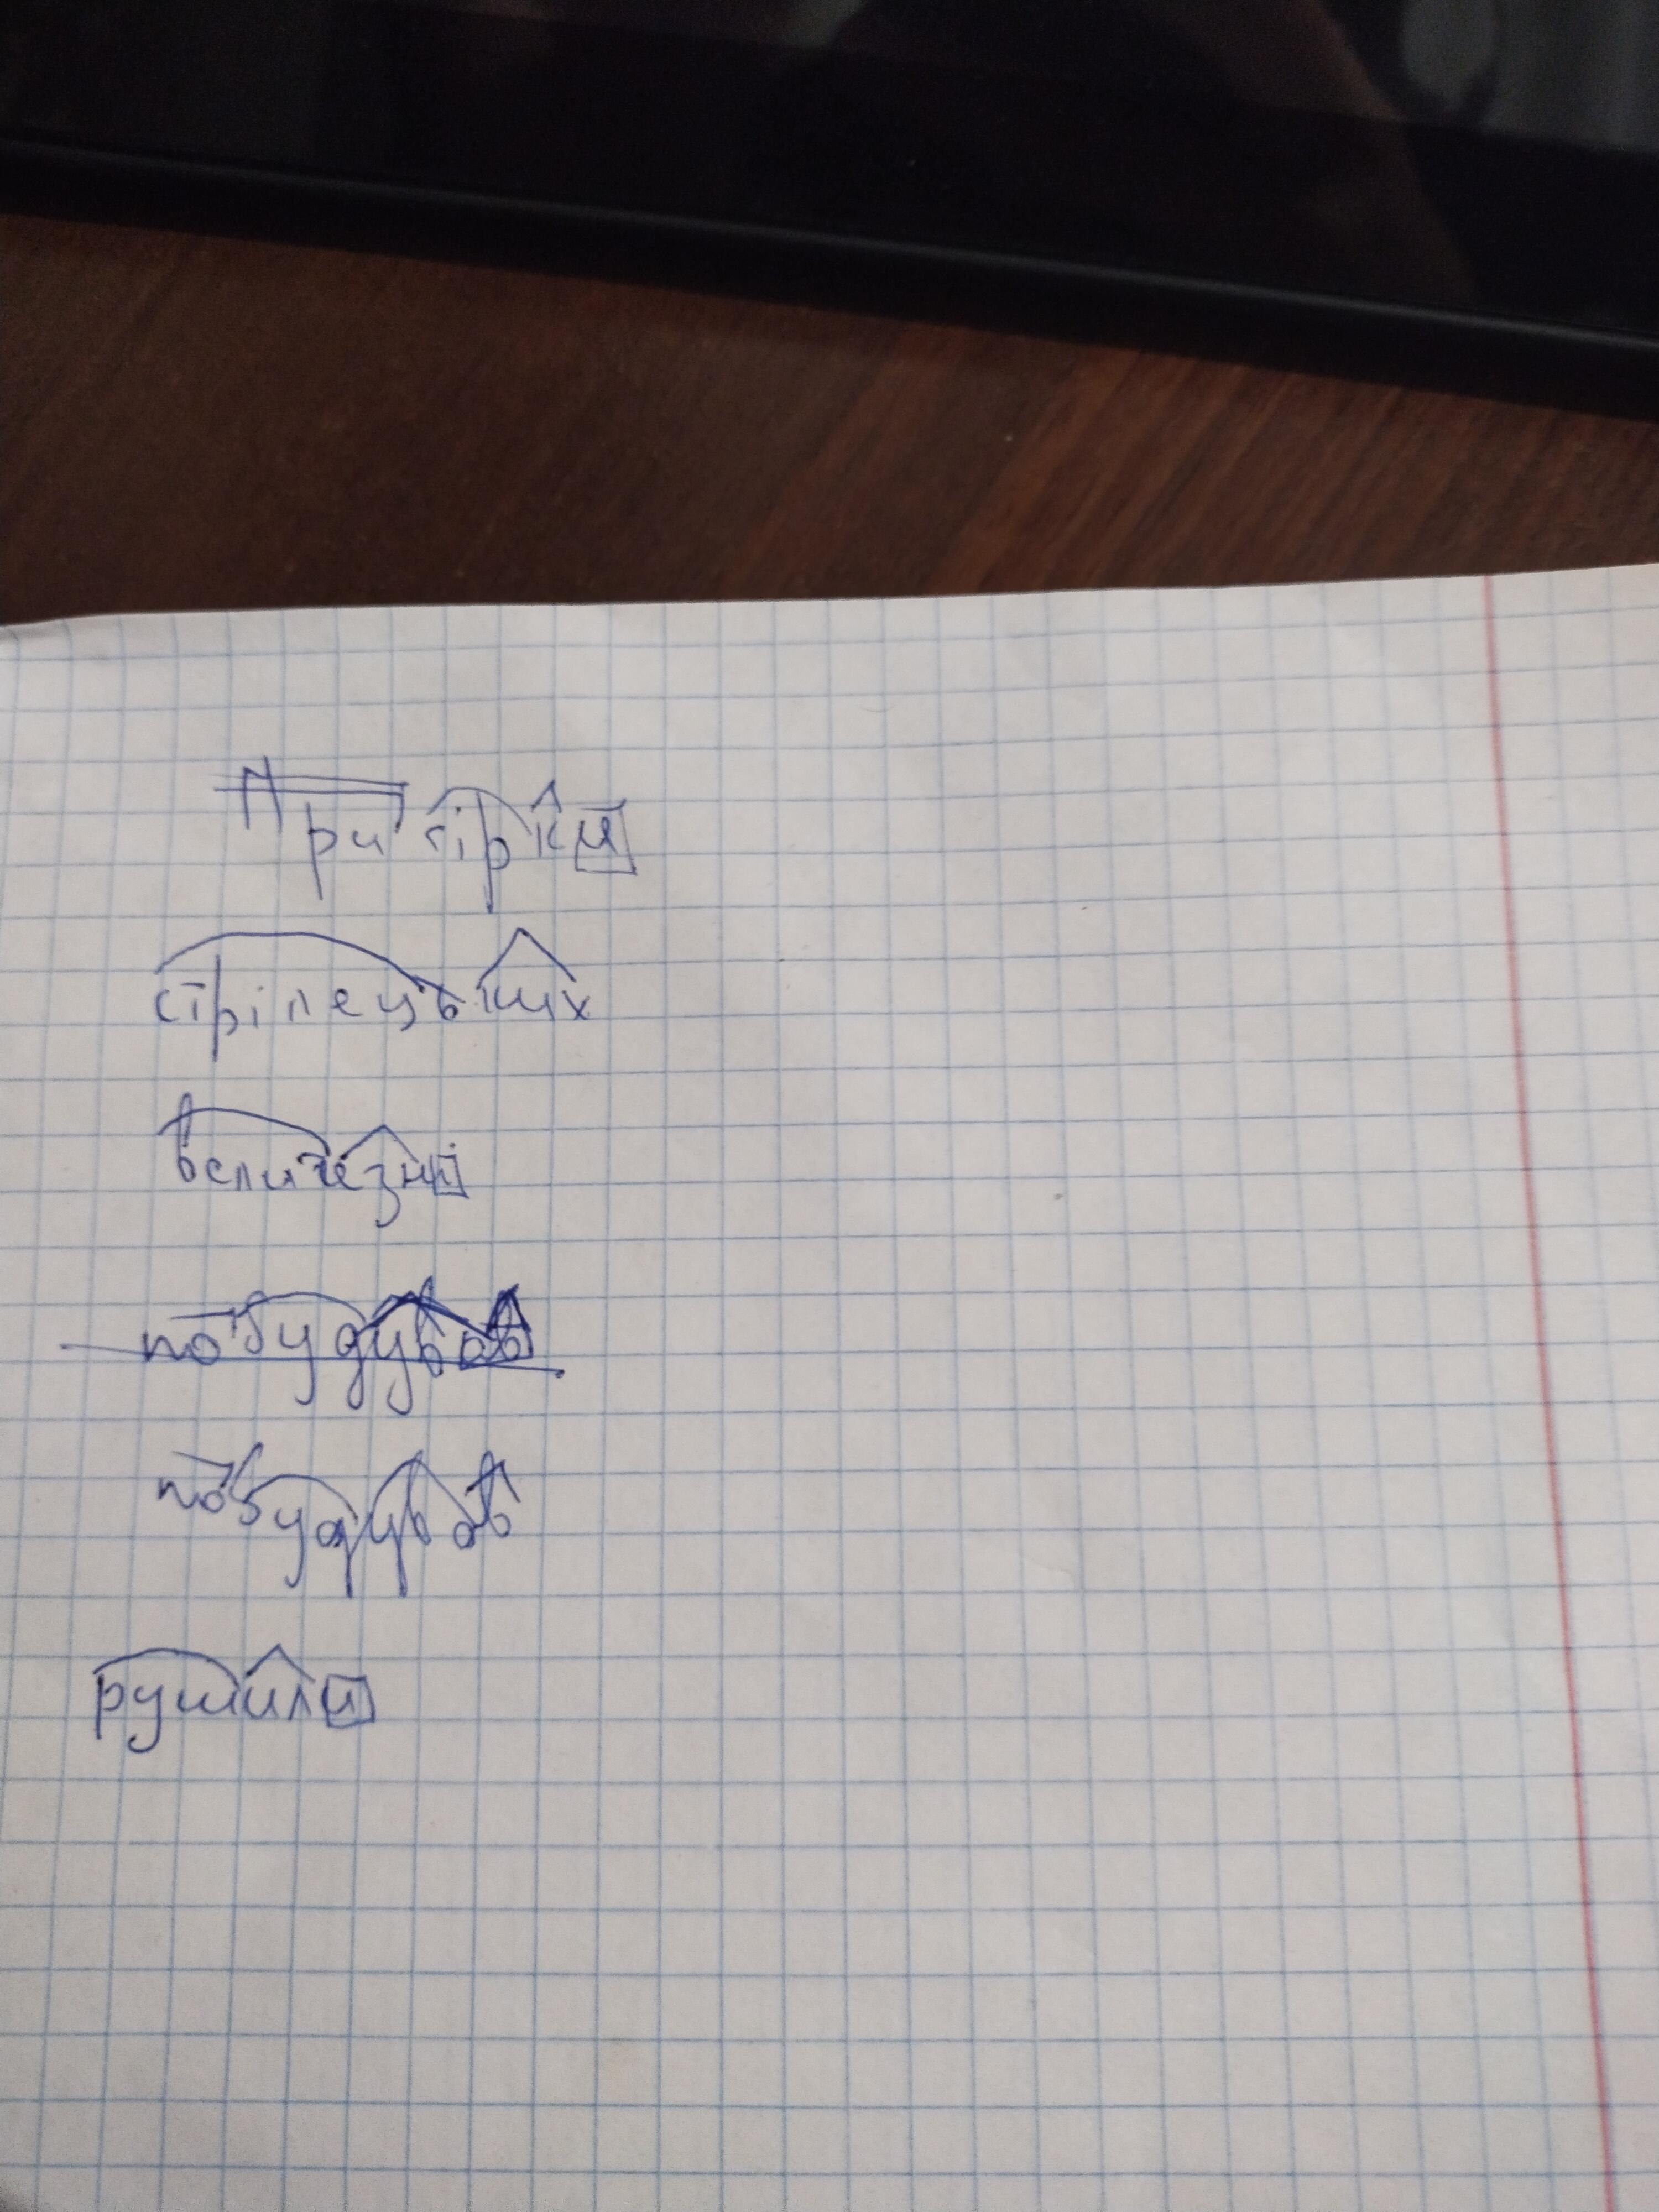 Пригірки
стрілецьких
величезні
побудував
побудував
рушили